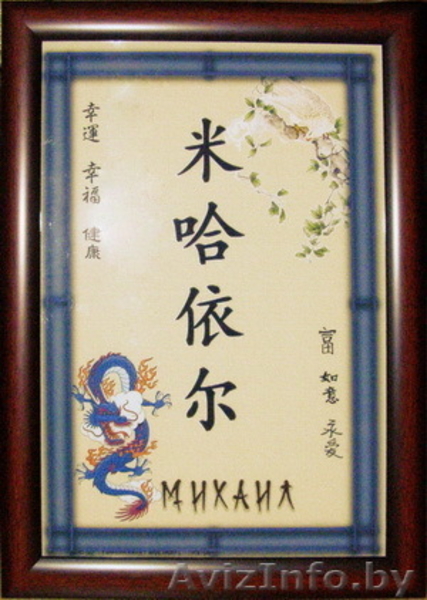 幸運 幸福 健康
米哈依尔
富 如意 永愛
МИХАИЛ
AvizInfo.by